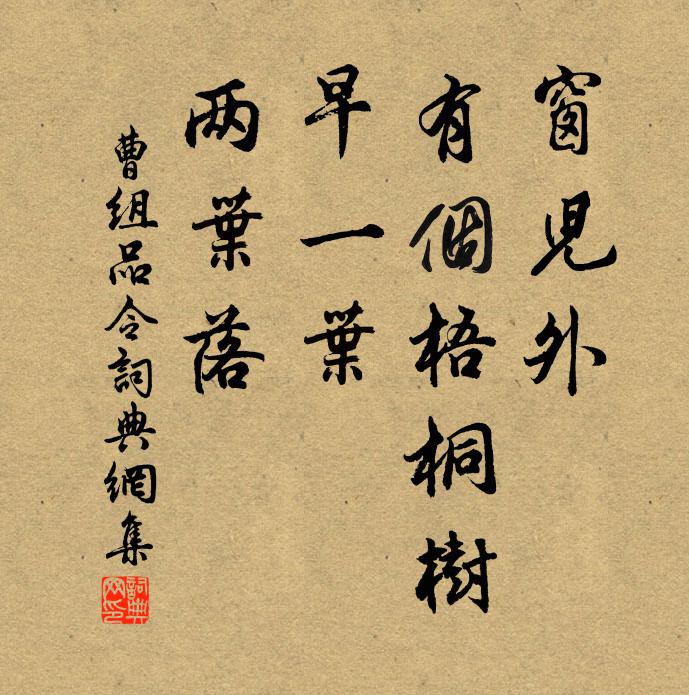 窗兒外
有個梧桐樹
早一葉
两葉落
曹组品令詞典網集
詞典网印